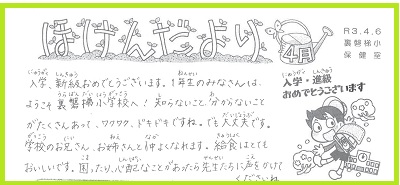 ほけんだより
4月
R3.4.6
裏磐梯小
保健室
にゅうがく しんきゅう
入学・進級
おめでとうございます
にゅうがく しんきゅう ねんせい
入学、新級おめでとうございます。1年生のみなさんは、
うらばんだいしょうがっこう
ようこそ裏磐梯小学校へ！知らないこと、分からないこと
がたくさんあって、ワクワク、ドキドキですね。でも大丈夫です。
学校のお兄さん、お姉さんと仲よくなれます。給食はとても
おいしいです。困ったり、心配なことがあったら先生たちに声をかけて
くださいね